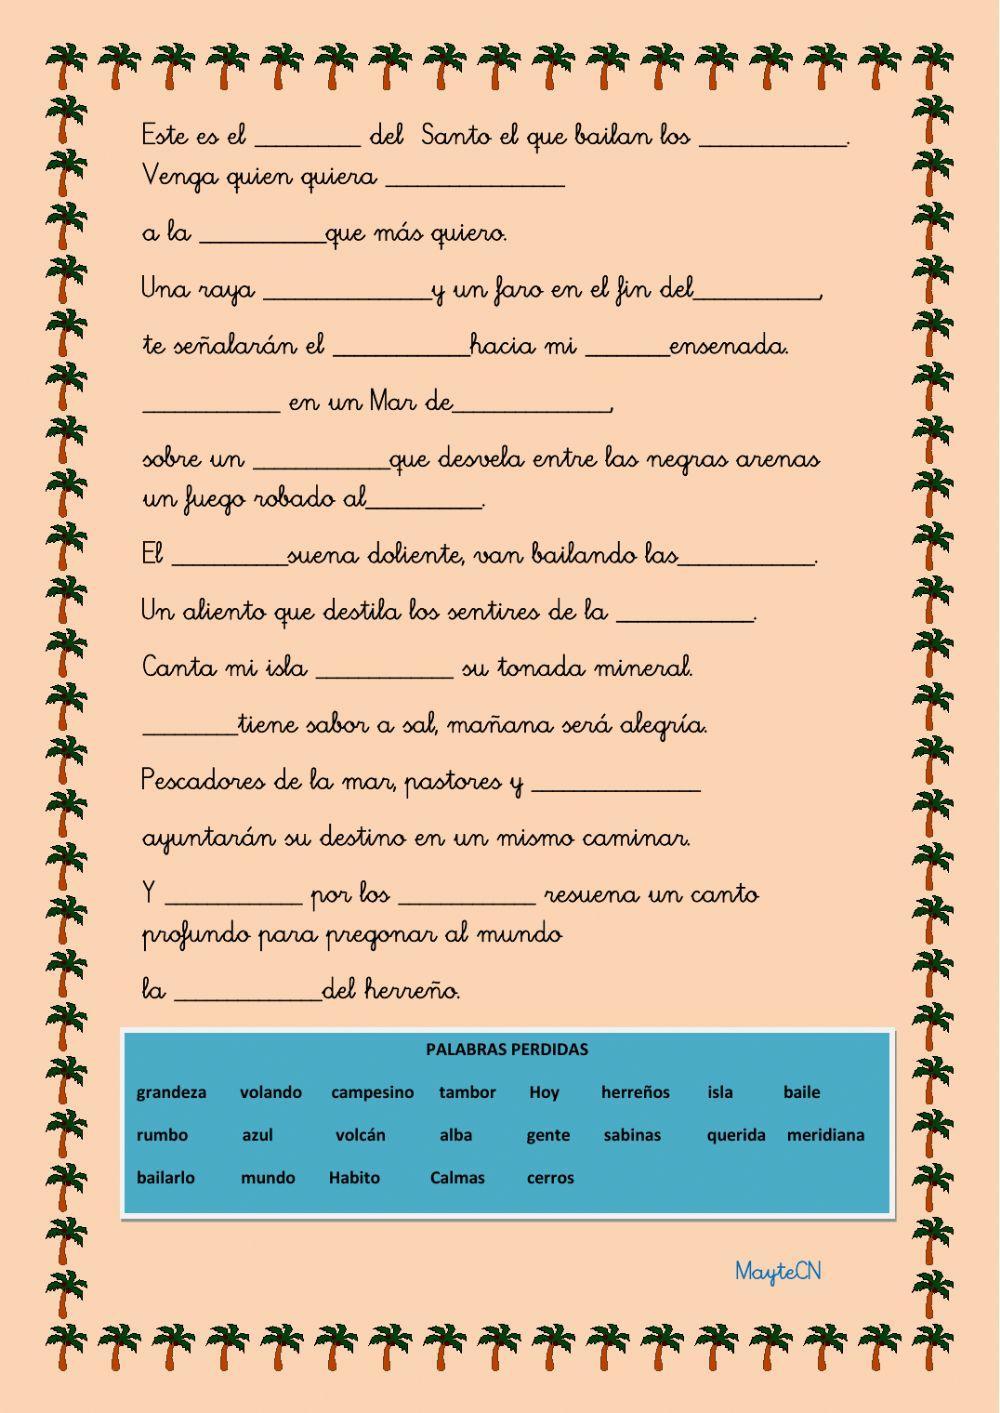 Este es el __________ del Santo el que bailan los ______________.
Venga quien quiera _________________
a la ____________que más quiero.
Una raya ________________y un faro en el fin del____________,
te señalarán el _____________hacia mi ________ensenada.
_____________ en un Mar de_______________,
sobre un _____________que desvela entre las negras arenas
un fuego robado al___________.
El ___________suena doliente, van bailando las_____________.
Un aliento que destila los sentires de la _____________.
Canta mi isla _____________ su tonada mineral.
_________tiene sabor a sal, mañana será alegría.
Pescadores de la mar, pastores y ________________
ayuntarán su destino en un mismo caminar.
Y _____________ por los _____________ resuena un canto
profundo para pregonar al mundo
la ______________del herreño.
PALABRAS PERDIDAS
grandeza volando campesino tambor Hoy herreños isla baile
rumbo azul volcán alba gente sabinas querida meridiana
bailarlo mundo Habito Calmas cerros
MayteCN